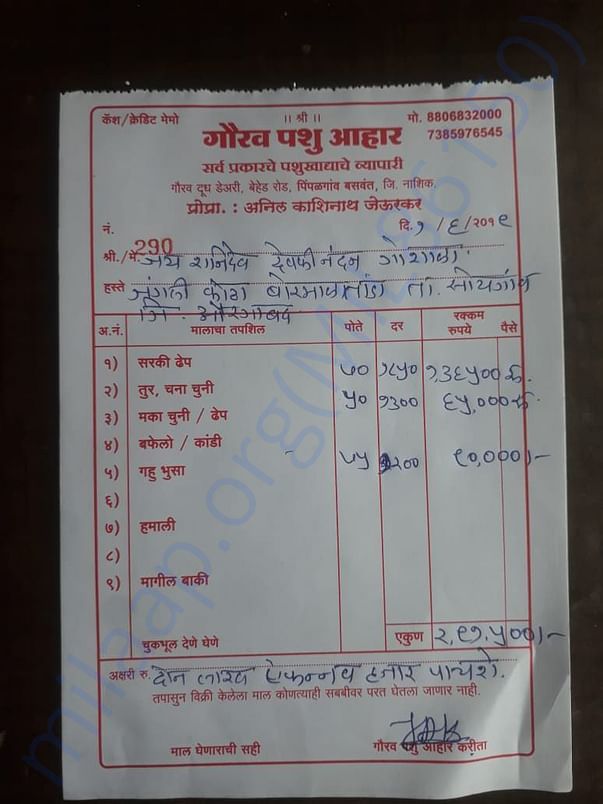 कॅश/क्रेडिट मेमो
॥ श्री ॥
मो. 8806832000
7385976545
गौरव पशु आहार
सर्व प्रकारचे पशुखाद्याचे व्यापारी
गौरव दूध डेअरी, बेहेड रोड, पिंपळगांव बसवंत, जि. नाशिक.
प्रोप्रा. : अनिल काशिनाथ जेऊरकर
नं. 290
दि. १/६/२०१९
श्री./मे. जय शनिदेव देवकीनंदन गोशाळा
हस्ते जंगली कोठा बोरमाळतांडा ता. सोयगांव
जि. औरंगाबाद
अ.नं. मालाचा तपशिल पोते दर रक्कम रुपये पैसे
१) सरकी ढेप ७०
२) तुर, चना चुनी ५० १३०० ६५,००० रु.
३) मका चुनी / ढेप
४) बफेलो / कांडी
५) गहु भुसा ७५ १२०० ९०,०००/-
६)
७) हमाली
८)
९) मागील बाकी
चुकभूल देणे घेणे एकुण २,९१,५००/-
अक्षरी रु. दोन लाख एकन्नव हजार पाचशे.
तपासुन विक्री केलेला माल कोणत्याही सबबीवर परत घेतला जाणार नाही.
माल घेणाराची सही गौरव पशु आहार करीता
milaap.org